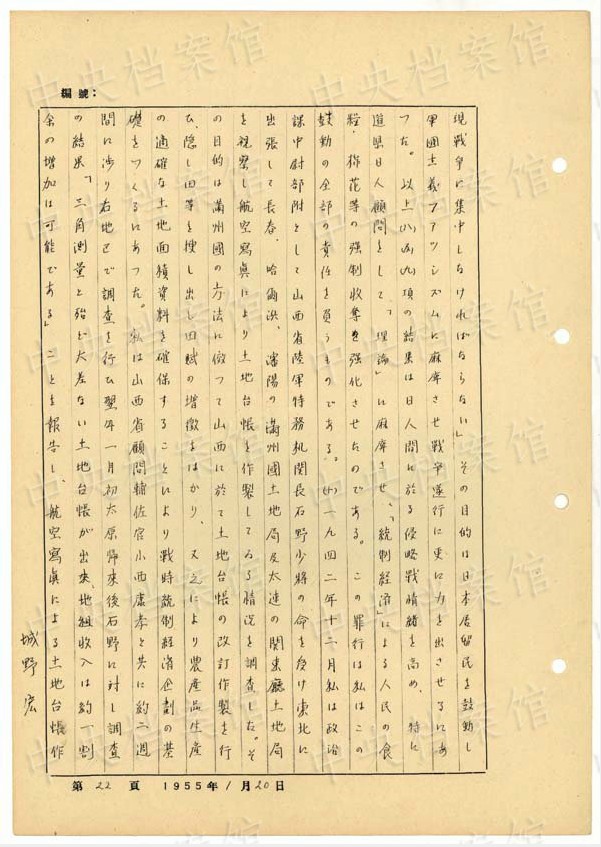 編號：
現戦争に集中しなければならない」その目的は日本居留民を鼓動し
軍國主義ファッシズムに麻痺させ戦争遂行に更に力を出させるにあ
つた。以上(八)(九)項の結果は日人間に於る侵略戦情緒を高め、特に
道県日人顧問をして、「理論」に麻痺させ、「統制経済」による人民の食
糧・棉花等の强制收奪を强化させたのである。この罪行は私はこの
鼓動の全部の責任を負うものである。 一九四二年十二月私は政治
課中尉部附として山西省陸軍特務机関長石野少將の命を受け東北に
出張して長春、哈爾浜、瀋陽の滿州國土地局及大連の関東廳土地局
を視察し航空寫眞により土地台帳を作製してゐる情況を調查した。そ
の目的は滿州國の方法に倣つて山西に於て土地台帳の改訂作製を行
ひ、隠し田等を捜し出し田賦の增徴をはかり、又之により農產品生産
の適確な土地面積資料を確保することにより戰時統制経済企劃の基
礎をつくるにあつた。私は山西省顧問輔佐官小西康孝と共に約二週
間に渉り右地区で調查を行ひ翌年一月初太原帰来後石野に対し調查
の結果「三角測量と殆ど大差ない土地台帳が出来、地組收入は約一割
余の增加は可能である」ことを報告し、航空寫眞による土地台帳作
城野宏
第 22 頁 1955年 1月20日
中央档案馆